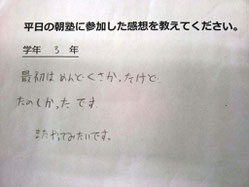 平日の朝塾に参加した感想を教えてください。
学年 3 年
最初はめんどくさかったけど
たのしかったです
またやってみたいです。